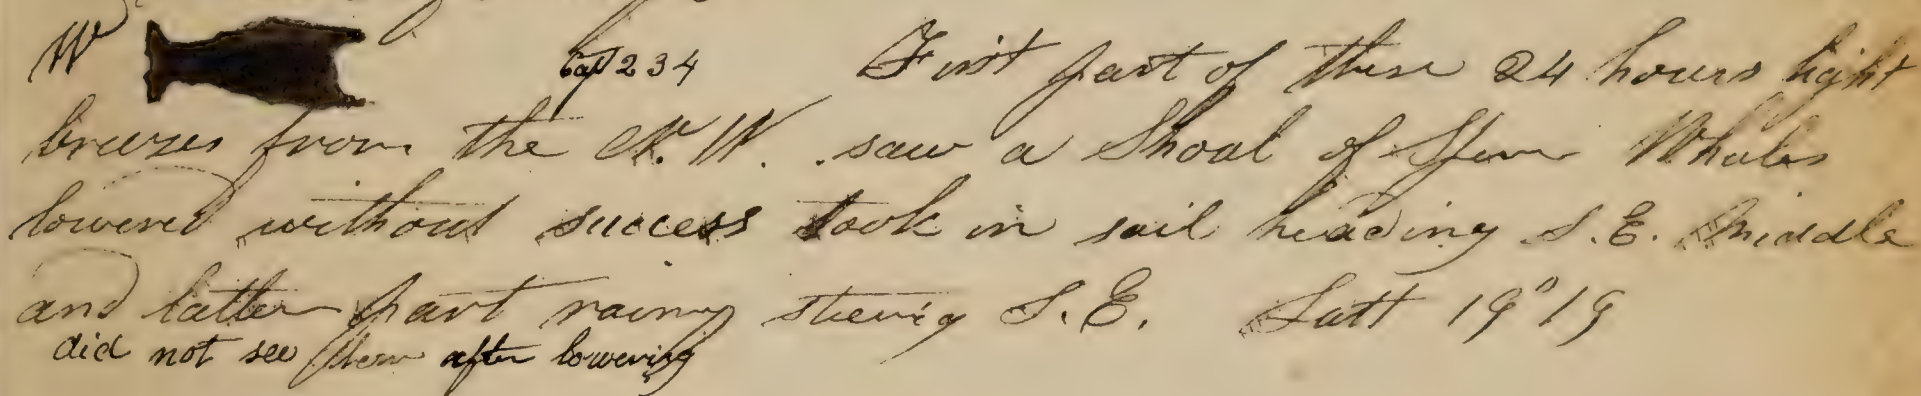 W 234 First part of these 24 hours light
breezes from the N.W. saw a Shoal of Sperm Whales
lowered without success took in sail heading S.E. Middle
and latter part rainy steering S.E. Latt 19°19
did not see them after lowering